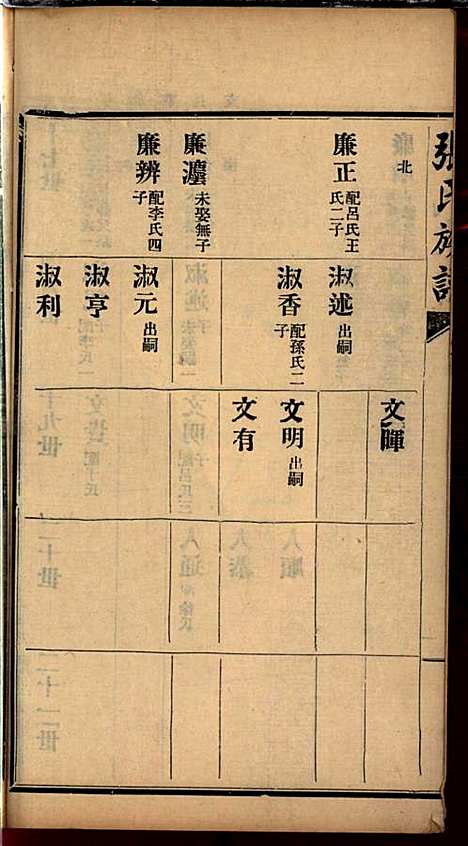 張氏族譜
北
廉正 配呂氏王氏二子
廉灋 未娶無子
廉辨 配李氏四子
淑述 出嗣
淑香 配孫氏二子
淑元 出嗣
淑亨
淑利
文暉
文明 出嗣
文有